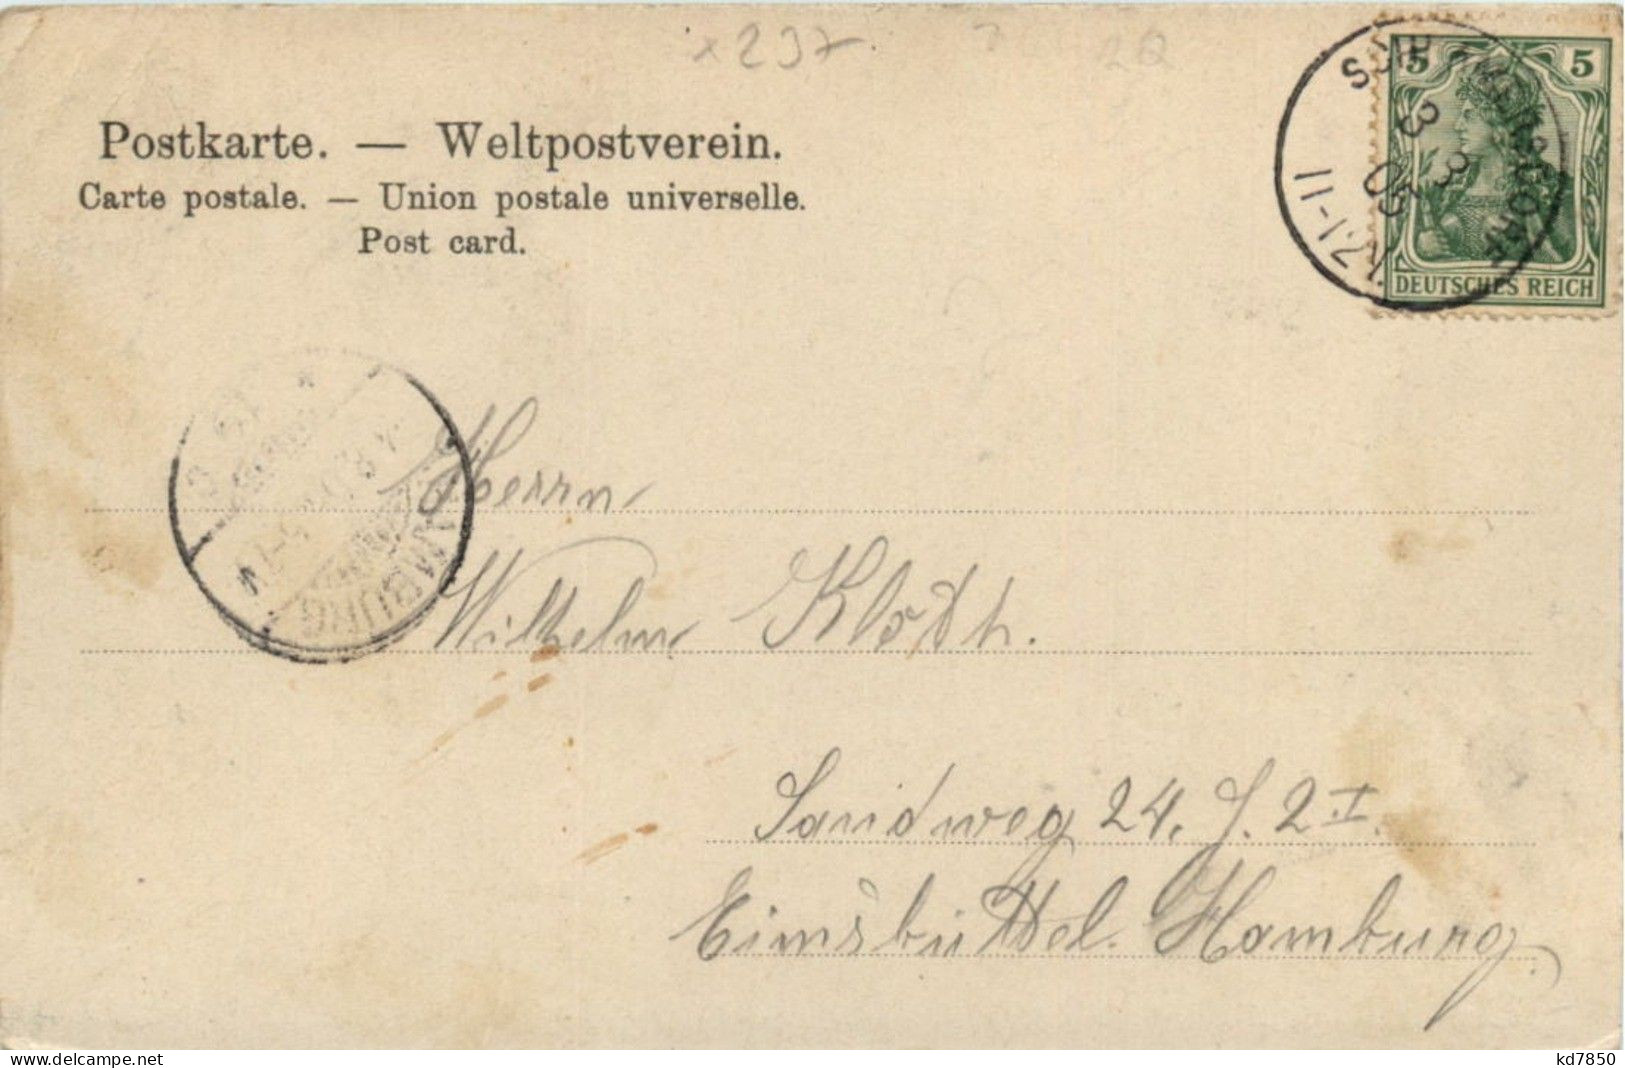 x 237
Postkarte. — Weltpostverein.
Carte postale. — Union postale universelle.
Post card.
5 5
DEUTSCHES REICH
3 3
05
11-12.V.
HAMBURG
Herrn
Wilhelm Klöth.
Sandweg 24. J. 2 I.
Eimsbüttel. Hamburg.
www.delcampe.net
kd7850